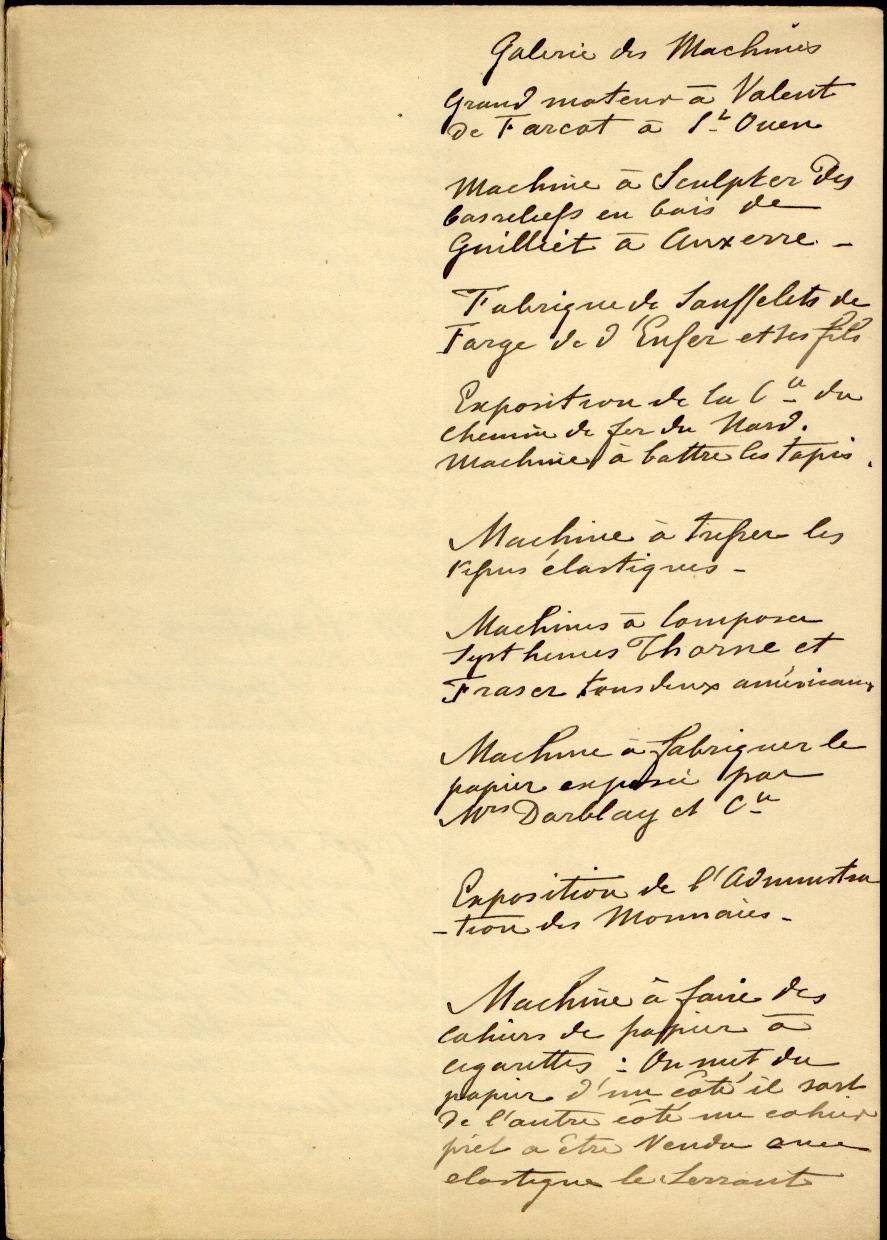 Galerie des Machines
Grand moteur à Valent
de Farcot à St Ouen
Machine à Sculpter des
basreliefs en bois de
Guilliet à Auxerre -
Fabrique de Soufflets de
Forge de d'Enfer et ses fils
Exposition de la Cie du
chemin de fer du Nord.
Machine à battre les tapis.
Machine à les
élastiques -
Machines à Composer
Systhemes Thorne et
Fraser tous deux américains
Machine à fabriquer le
papier exposée par
Mrs Darblay et Cie
Exposition de l'Administra
-tion des Monnaies -
Machine à faire des
cahiers de papier à
cigarettes : On met du
papier d'un côté il sort
de l'autre côté un cahier
prêt a être Vendu avec
elastique le Serrant